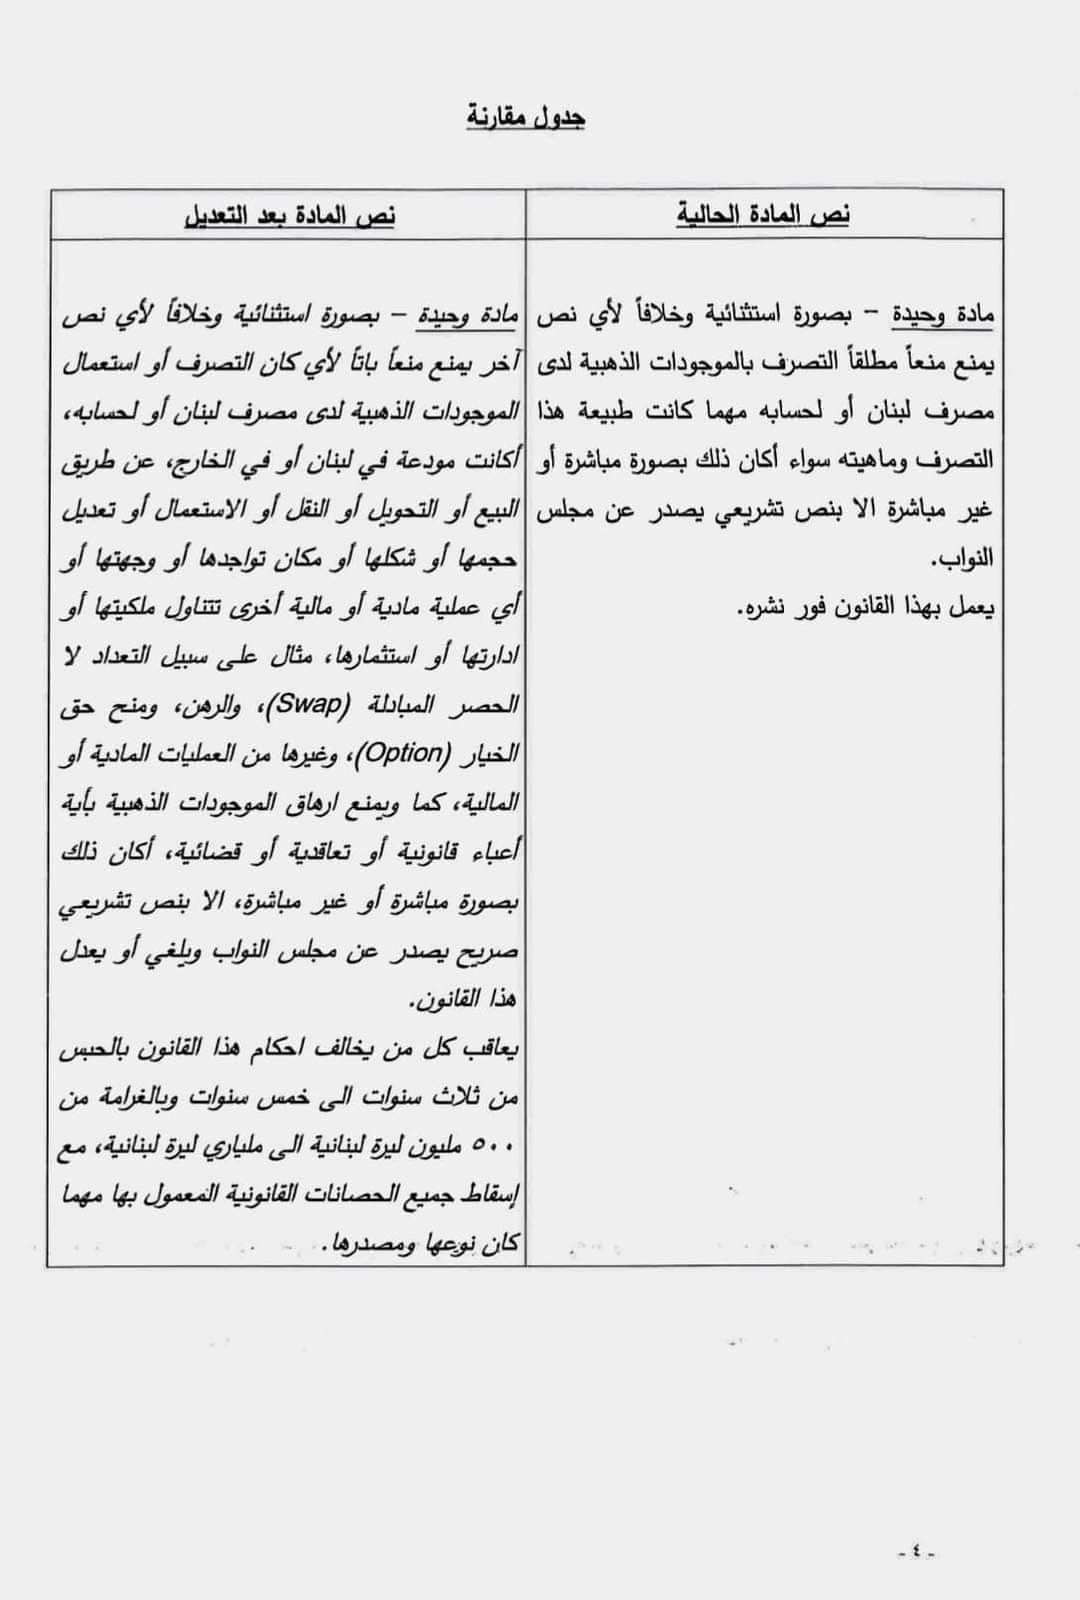 جدول مقارنة
نص المادة الحالية
مادة وحيدة – بصورة استثنائية وخلافاً لأي نص
يمنع منعاً مطلقاً التصرف بالموجودات الذهبية لدى
مصرف لبنان أو لحسابه مهما كانت طبيعة هذا
التصرف وماهيته سواء أكان ذلك بصورة مباشرة أو
غير مباشرة الا بنص تشريعي يصدر عن مجلس
النواب.
يعمل بهذا القانون فور نشره.
نص المادة بعد التعديل
مادة وحيدة – بصورة استثنائية وخلافاً لأي نص
آخر يمنع منعاً باتاً لأي كان التصرف أو استعمال
الموجودات الذهبية لدى مصرف لبنان أو لحسابه،
أكانت مودعة في لبنان أو في الخارج، عن طريق
البيع أو التحويل أو النقل أو الاستعمال أو تعديل
حجمها أو شكلها أو مكان تواجدها أو وجهتها أو
أي عملية مادية أو مالية أخرى تتناول ملكيتها أو
ادارتها أو استثمارها، مثال على سبيل التعداد لا
الحصر المبادلة (Swap)، والرهن، ومنح حق
الخيار (Option)، وغيرها من العمليات المادية أو
المالية، كما ويمنع ارهاق الموجودات الذهبية بأية
أعباء قانونية أو تعاقدية أو قضائية، أكان ذلك
بصورة مباشرة أو غير مباشرة، الا بنص تشريعي
صريح يصدر عن مجلس النواب ويلغي أو يعدل
هذا القانون.
يعاقب كل من يخالف احكام هذا القانون بالحبس
من ثلاث سنوات الى خمس سنوات وبالغرامة من
٥٠٠ مليون ليرة لبنانية الى ملياري ليرة لبنانية، مع
إسقاط جميع الحصانات القانونية المعمول بها مهما
كان نوعها ومصدرها.
- ٤ -